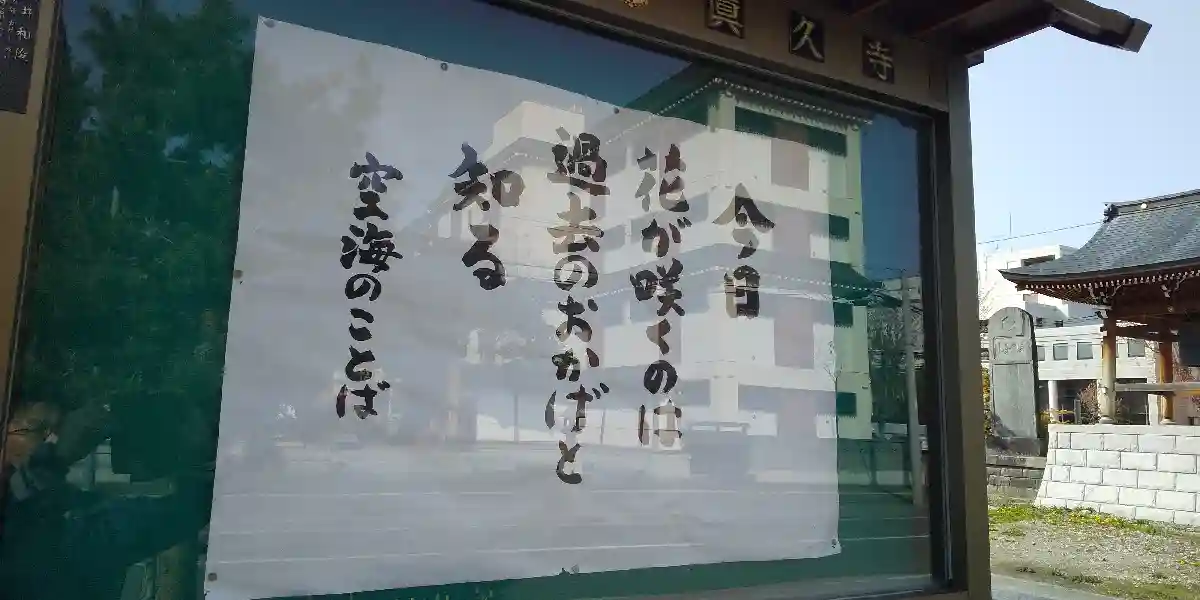 眞久寺
今日
花が咲くのは
過去のおかばと
知る
空海のことば